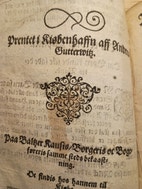 Prentet i Kiøbenhaffn aff Andre
Gutterwitz.
Paa Baltzer Kausis / Borgeris oc Bog-
føreris sammesteds bekaaste-
ning.
Oc findis hos hannem til